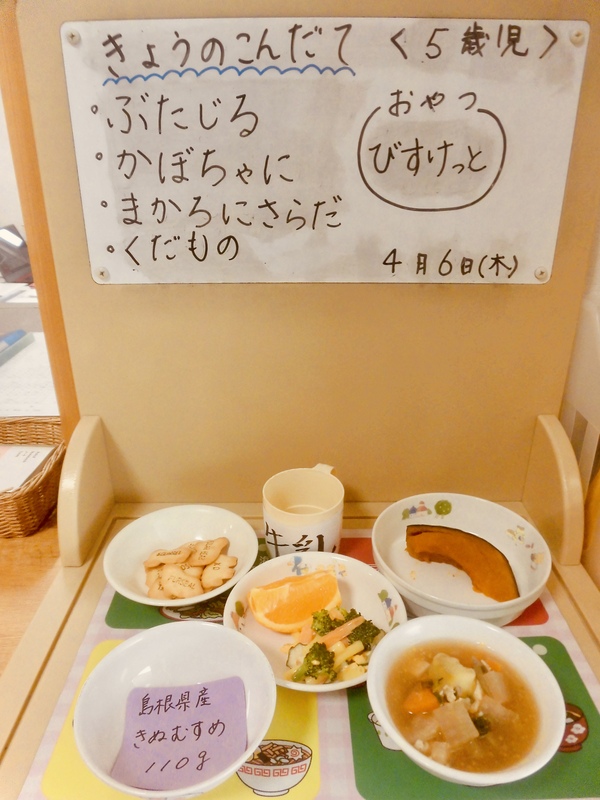 きょうのこんだて 〈5歳児〉
・ぶたじる
・かぼちゃに
・まかろにさらだ
・くだもの
おやつ
びすけっと
4月6日(木)
牛乳
島根県産
きぬむすめ
110g